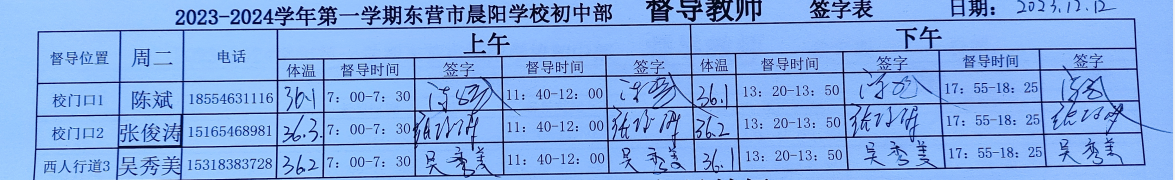 2023-2024学年第一学期东营市晨阳学校初中部 督导教师 签字表 日期: 2023.12.12
督导位置 周二 电话 上午 下午
体温 督导时间 签字 督导时间 签字 体温 督导时间 签字 督导时间 签字
校门口1 陈斌 18554631116 36.1 7: 00-7: 30 11: 40-12: 00 36.1 13: 20-13: 50 17: 55-18: 25
校门口2 张俊涛 15165468981 36.3 7: 00-7: 30 张俊涛 11: 40-12: 00 张俊涛 36.2 13: 20-13: 50 张俊涛 17: 55-18: 25 张俊涛
西人行道3 吴秀美 15318383728 36.2 7: 00-7: 30 吴秀美 11: 40-12: 00 吴秀美 36.1 13: 20-13: 50 吴秀美 17: 55-18: 25 吴秀美